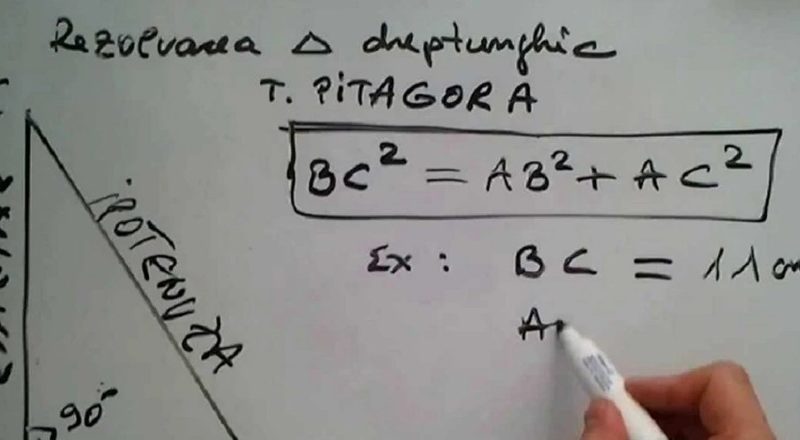 Rezolvarea △ dreptunghic
T. PITAGORA
BC² = AB² + AC²
Ex: BC = 11 cm
A
IPOTENUZA
90°